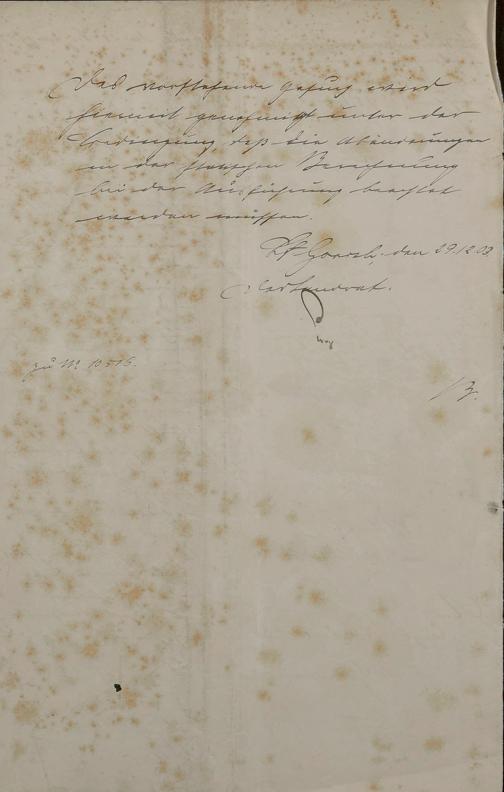 Das vorstehende Gesuch wird
hiermit genehmigt unter der
Bedingung daß die Abänderungen
in der statischen Berechnung
bei der Ausführung beachtet
werden müssen.
St Goarsh., den 29.12.
Der Landrat.
zu No 10515.